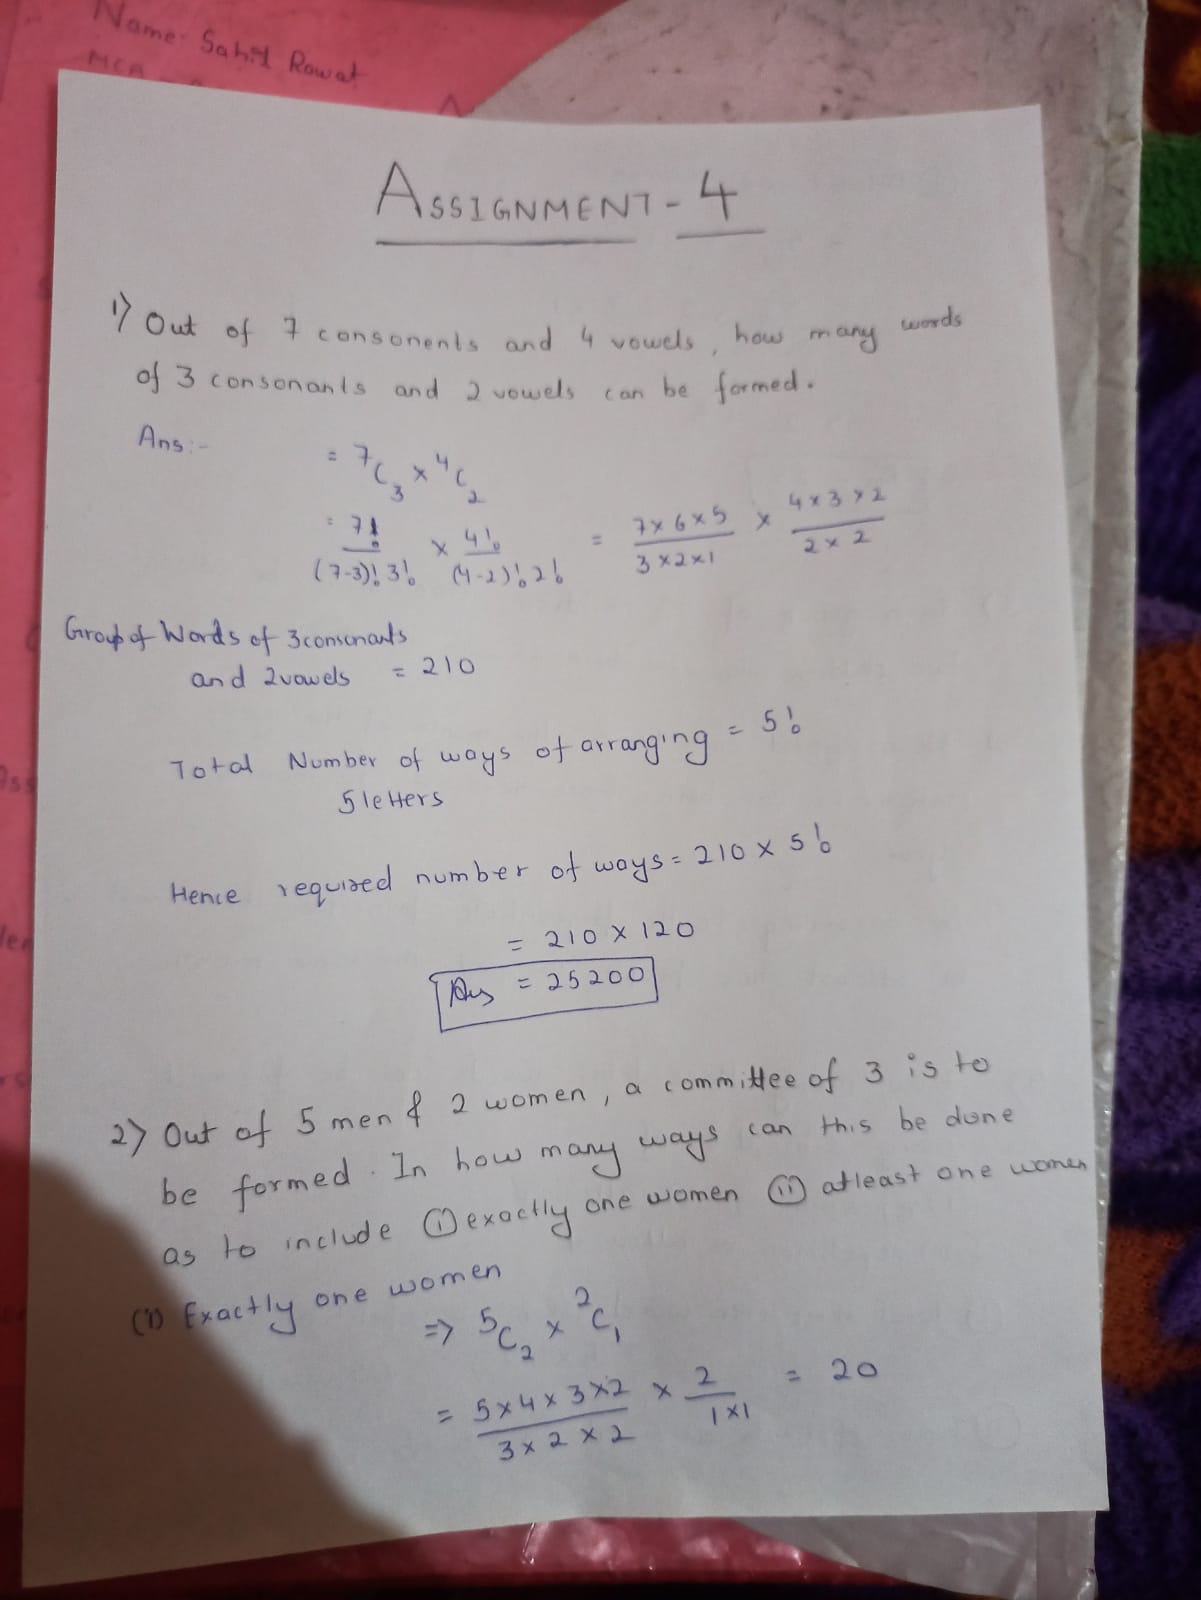 Name- Sahil Rawat
MCA
ASSIGNMENT - 4
1) Out of 7 consonents and 4 vowels, how many words
of 3 consonants and 2 vowels can be formed.
Ans:-
= ⁷C₃ × ⁴C₂
= 7!/(7-3)! 3! × 4!/(4-2)! 2! = 7×6×5/3×2×1 × 4×3×2/2×2
Group of Words of 3 consonants
and 2 vowels = 210
Total Number of ways of arranging = 5!
5 letters
Hence required number of ways = 210 × 5!
= 210 × 120
Ans = 25200
2) Out of 5 men & 2 women, a committee of 3 is to
be formed. In how many ways can this be done
as to include (i) exactly one women (ii) atleast one women
(i) Exactly one women
=> ⁵C₂ × ²C₁
= 5×4×3×2/3×2×2 × 2/1×1 = 20